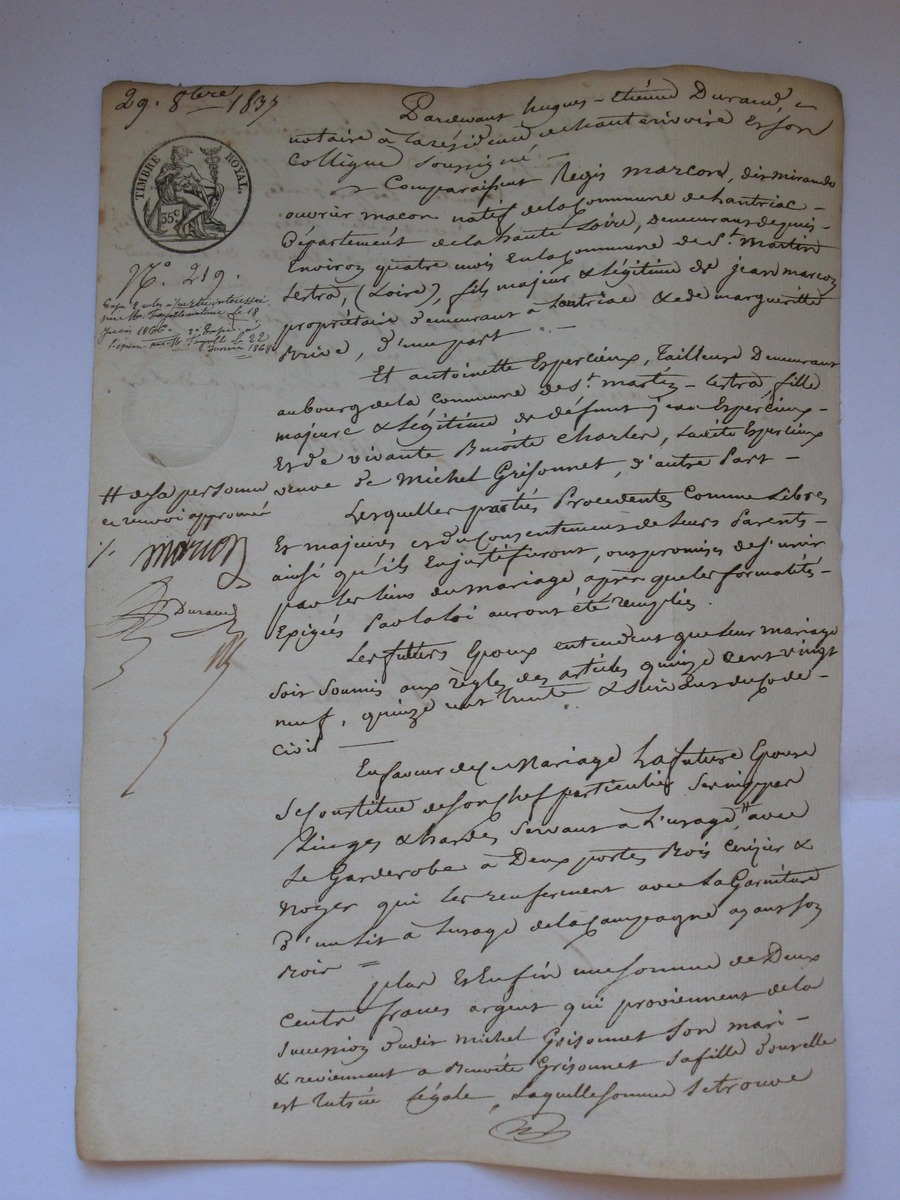 29. 8bre 1837
TIMBRE ROYAL.
35c
No. 219.
juin 1866.
# de sa personne
ce renvoi approuvé
marcon
Durand
Pardevant hugues-étiénne Durand,
notaire à la résidence de chanterivoire et son
Collégue soussigné
Comparaissent Regis marcon, dit mirando
ouvrier macon natif de la Commune de chantriac
Département de la haute Loire, demeurant depuis
Environ quatre mois En la Commune de St. Martin
Lestra, (Loire), fils majeur & légitime de jean marcon
propriétaire demeurant à et de margueritte
Brive, d'une part
Et antoinette Espercieux, Tailleuse Demeurant
au bourg de la Commune de St. martin-Lestra, fille
majeure & Légitime de défunt jean Espercieux
Et de vivante Benoite Charles, Ladite Espercieux
veuve de Michel Grisonnet, d'autre Part
Lesquelles parties Procedantes Comme Libres
Et majeures et du Consentement de leurs Parents
ainsi qu'ils En justifieront, ont promises de s'unir
par les liens du mariage après que les formalités
Exigées Par la loi auront été remplies.
Les futurs Epoux entendent que leur mariage
soit soumis aux règles des articles quinze cent vingt
neuf, quinze cent trente & suivants du code
civil
En faveur de ce Mariage La future Epouse
Se Constitue de son Chef particulier
Linges & hardes servant à L'usage # avec
Le Garderobe à Deux portes Bois Cerisier &
Noyer qui les renferment avec La Garniture
D'un lit à L'usage de la Campagne ayant son
Bois =
plus Et Enfin une somme de Deux
Cents francs argent qui proviennent de la
succession dudit Michel Grisonnet son mari
& reviennent à Benoite Grisonnet sa fille d'ouvelle
est Légale, Laquelle somme se trouve